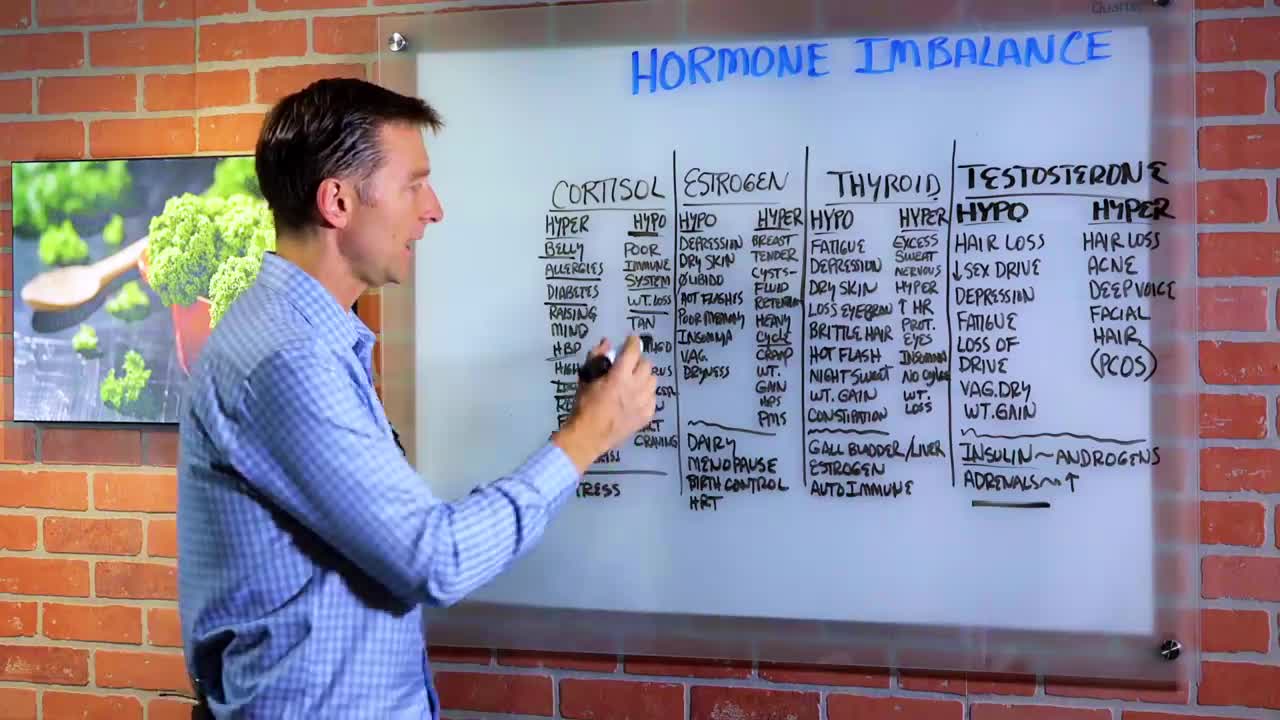 HORMONE IMBALANCE
CORTISOL
HYPER
BELLY
ALLERGIES
DIABETES
RAISING
MIND
HBP
HYPO
POOR
IMMUNE
SYSTEM
WT. LOSS
TAN
CRAVING
ESTROGEN
HYPO
DEPRESSION
DRY SKIN
ØLIBIDO
HOT FLASHES
POOR MEMORY
INSOMNIA
VAG.
DRYNESS
HYPER
BREAST
TENDER
CYSTS-
FLUID
RETENTION
HEAVY
CYCLE
CRAMP
WT.
GAIN
HPS
PMS
DAIRY
MENOPAUSE
BIRTH CONTROL
HRT
THYROID
HYPO
FATIGUE
DEPRESSION
DRY SKIN
LOSS EYEBROW
BRITTLE HAIR
HOT FLASH
NIGHT SWEAT
WT. GAIN
CONSTIPATION
HYPER
EXCESS
SWEAT
NERVOUS
HYPER
↑ HR
PROT.
EYES
INSOMNIA
NO CYCLE
WT.
LOSS
GALL BLADDER/LIVER
ESTROGEN
AUTOIMMUNE
TESTOSTERONE
HYPO
HAIR LOSS
↓SEX DRIVE
DEPRESSION
FATIGUE
LOSS OF
DRIVE
VAG. DRY
WT. GAIN
HYPER
HAIR LOSS
ACNE
DEEP VOICE
FACIAL
HAIR
(PCOS)
INSULIN~ANDROGENS
ADRENALS~↑